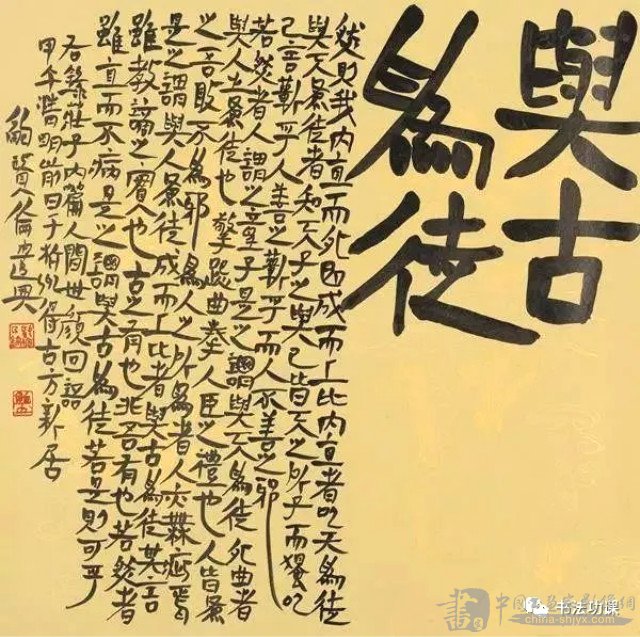 與古
為徒
然則我內直而外曲成而上比內直者與天為徒
與天為徒者知天子之與己皆天之所子而獨以
己言蘄乎人善之蘄乎而人不善之邪
若然者人謂之童子是之謂與天為徒外曲者
與人之為徒也擎跽曲拳人臣之禮也人皆為
之吾敢不為邪為人之所為者人亦無疵焉
是之謂與人為徒成而上比者與古為徒其言
雖教謫之實也古之有也非吾有也若然者
雖直而不病是之謂與古為徒若是則可乎
右錄莊子內篇人間世顏回語
甲午清明前日于得古方新居
鮑賢倫
书法功课